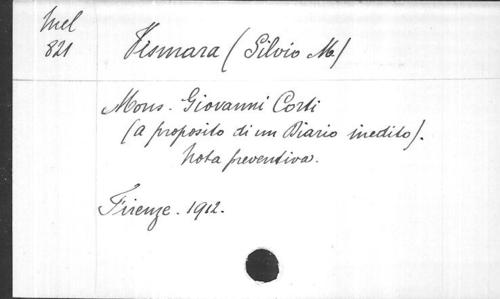 Mel
821
Vismara (Silvio M.)
Mons. Giovanni Corti
(a proposito di un Diario inedito).
Nota preventiva.
Firenze. 1912.